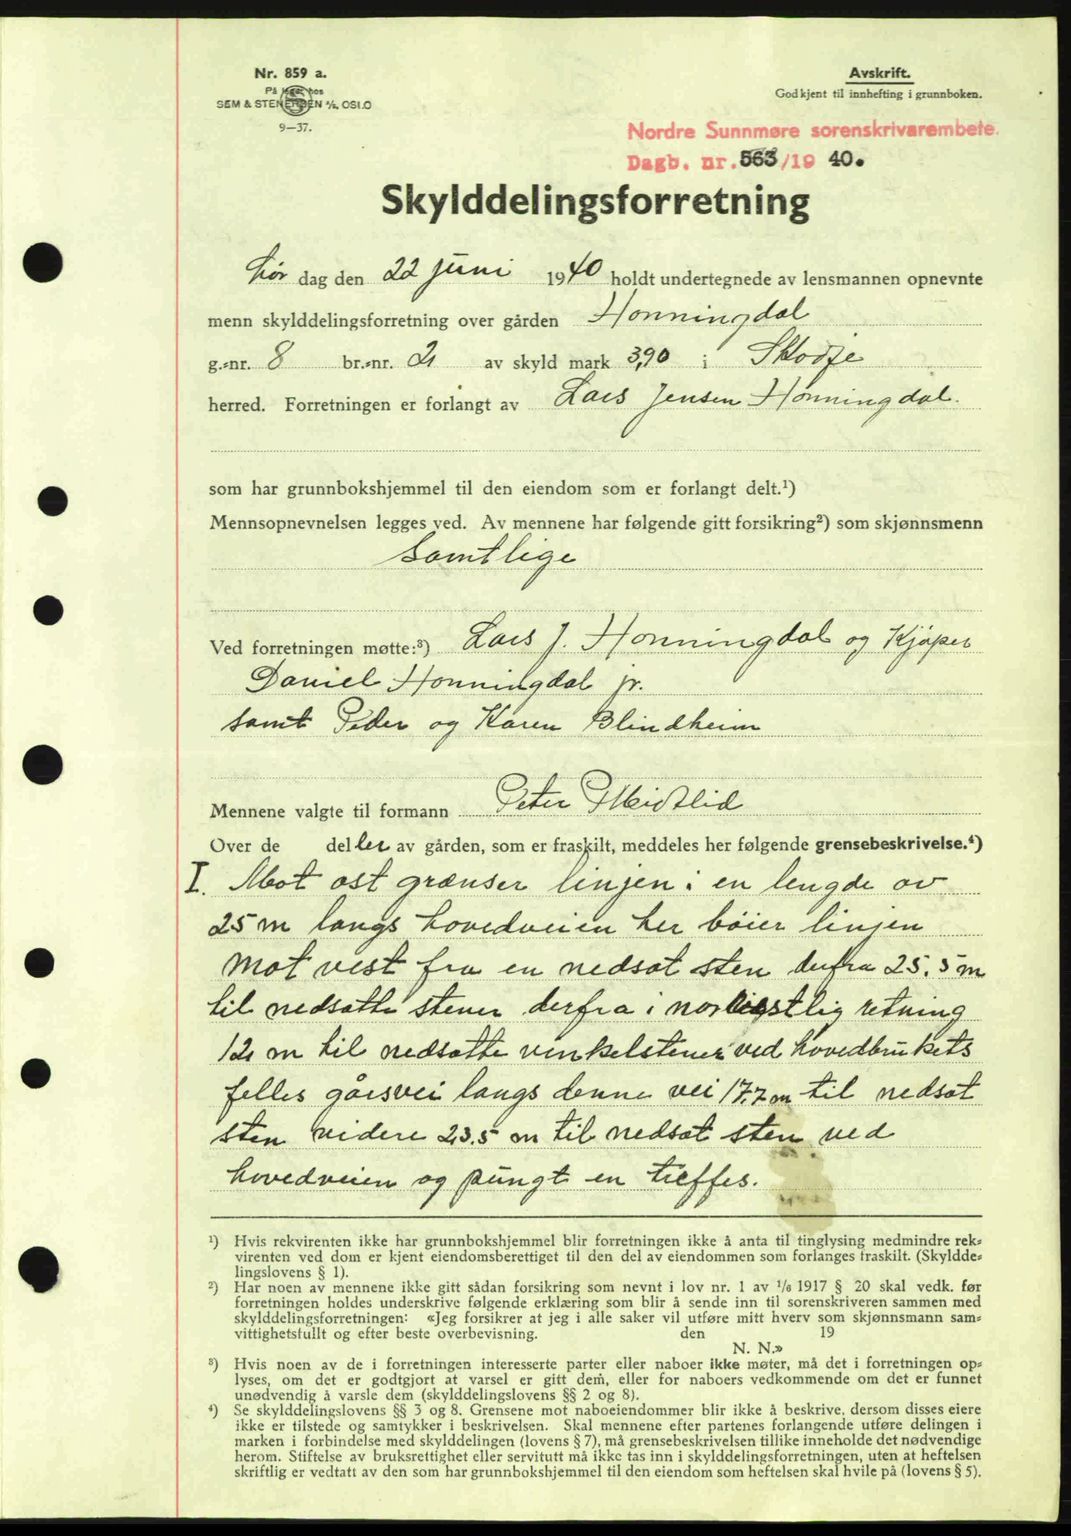 Nr. 859 a.
På lager hos
SEM & STENERSEN A/S, OSLO
9—37.
Avskrift.
Godkjent til innhefting i grunnboken.
Nordre Sunnmøre sorenskrivarembete.
Dagb. nr. 563/19 40.
Skylddelingsforretning
Lør dag den 22 juni 1940 holdt undertegnede av lensmannen opnevnte
menn skylddelingsforretning over gården Honningdal
g.-nr. 8 br.-nr. 2 av skyld mark 3,90 i Skodje
herred. Forretningen er forlangt av Lars Jensen Honningdal.
som har grunnbokshjemmel til den eiendom som er forlangt delt.¹)
Mennsopnevnelsen legges ved. Av mennene har følgende gitt forsikring²) som skjønnsmenn
Samtlige
Ved forretningen møtte:³) Lars J. Honningdal og Kjøper
Daniel Honningdal jr.
samt Peder og Karen Blindheim
Mennene valgte til formann Peter Midtlid
Over de deller av gården, som er fraskilt, meddeles her følgende grensebeskrivelse.⁴)
I. Mot ost grænser linjen i en lengde av
25 m langs hovedveien her bøier linjen
mot vest fra en nedsat sten derfra 25.5 m
til nedsatte stener derfra i nordøstlig retning
12 m til nedsatte vinkelstener ved hovedbrukets
felles gårsvei langs denne vei 17,7 m til nedsat
sten videre 23.5 m til nedsat sten ved
hovedveien og pungt en treffes.
¹) Hvis rekvirenten ikke har grunnbokshjemmel blir forretningen ikke å anta til tinglysing medmindre rek-
virenten ved dom er kjent eiendomsberettiget til den del av eiendommen som forlanges fraskilt. (Skyldde-
lingslovens § 1).
²) Har noen av mennene ikke gitt sådan forsikring som nevnt i lov nr. 1 av 1/6 1917 § 20 skal vedk. før
forretningen holdes underskrive følgende erklæring som blir å sende inn til sorenskriveren sammen med
skylddelingsforretningen: «Jeg forsikrer at jeg i alle saker vil utføre mitt hverv som skjønnsmann sam-
vittighetsfullt og efter beste overbevisning. den 19
N. N.»
³) Hvis noen av de i forretningen interesserte parter eller naboer ikke møter, må det i forretningen op-
lyses, om det er godtgjort at varsel er gitt dem, eller for naboers vedkommende om det er funnet
unødvendig å varsle dem (skylddelingslovens §§ 2 og 8).
⁴) Se skylddelingslovens §§ 3 og 8. Grensene mot naboeiendommer blir ikke å beskrive, dersom disses eiere
ikke er tilstede og samtykker i beskrivelsen. Skal mennene efter partenes forlangende utføre delingen i
marken i forbindelse med skylddelingen (lovens § 7), må grensebeskrivelsen tillike inneholde det nødvendige
herom. Stiftelse av bruksrettighet eller servitutt må ikke tas inn i skylddelingsforretningen, uten at heftelsen
skriftlig er vedtatt av den som har grunnbokshjemmel til den eiendom som heftelsen skal hvile på (lovens § 5).